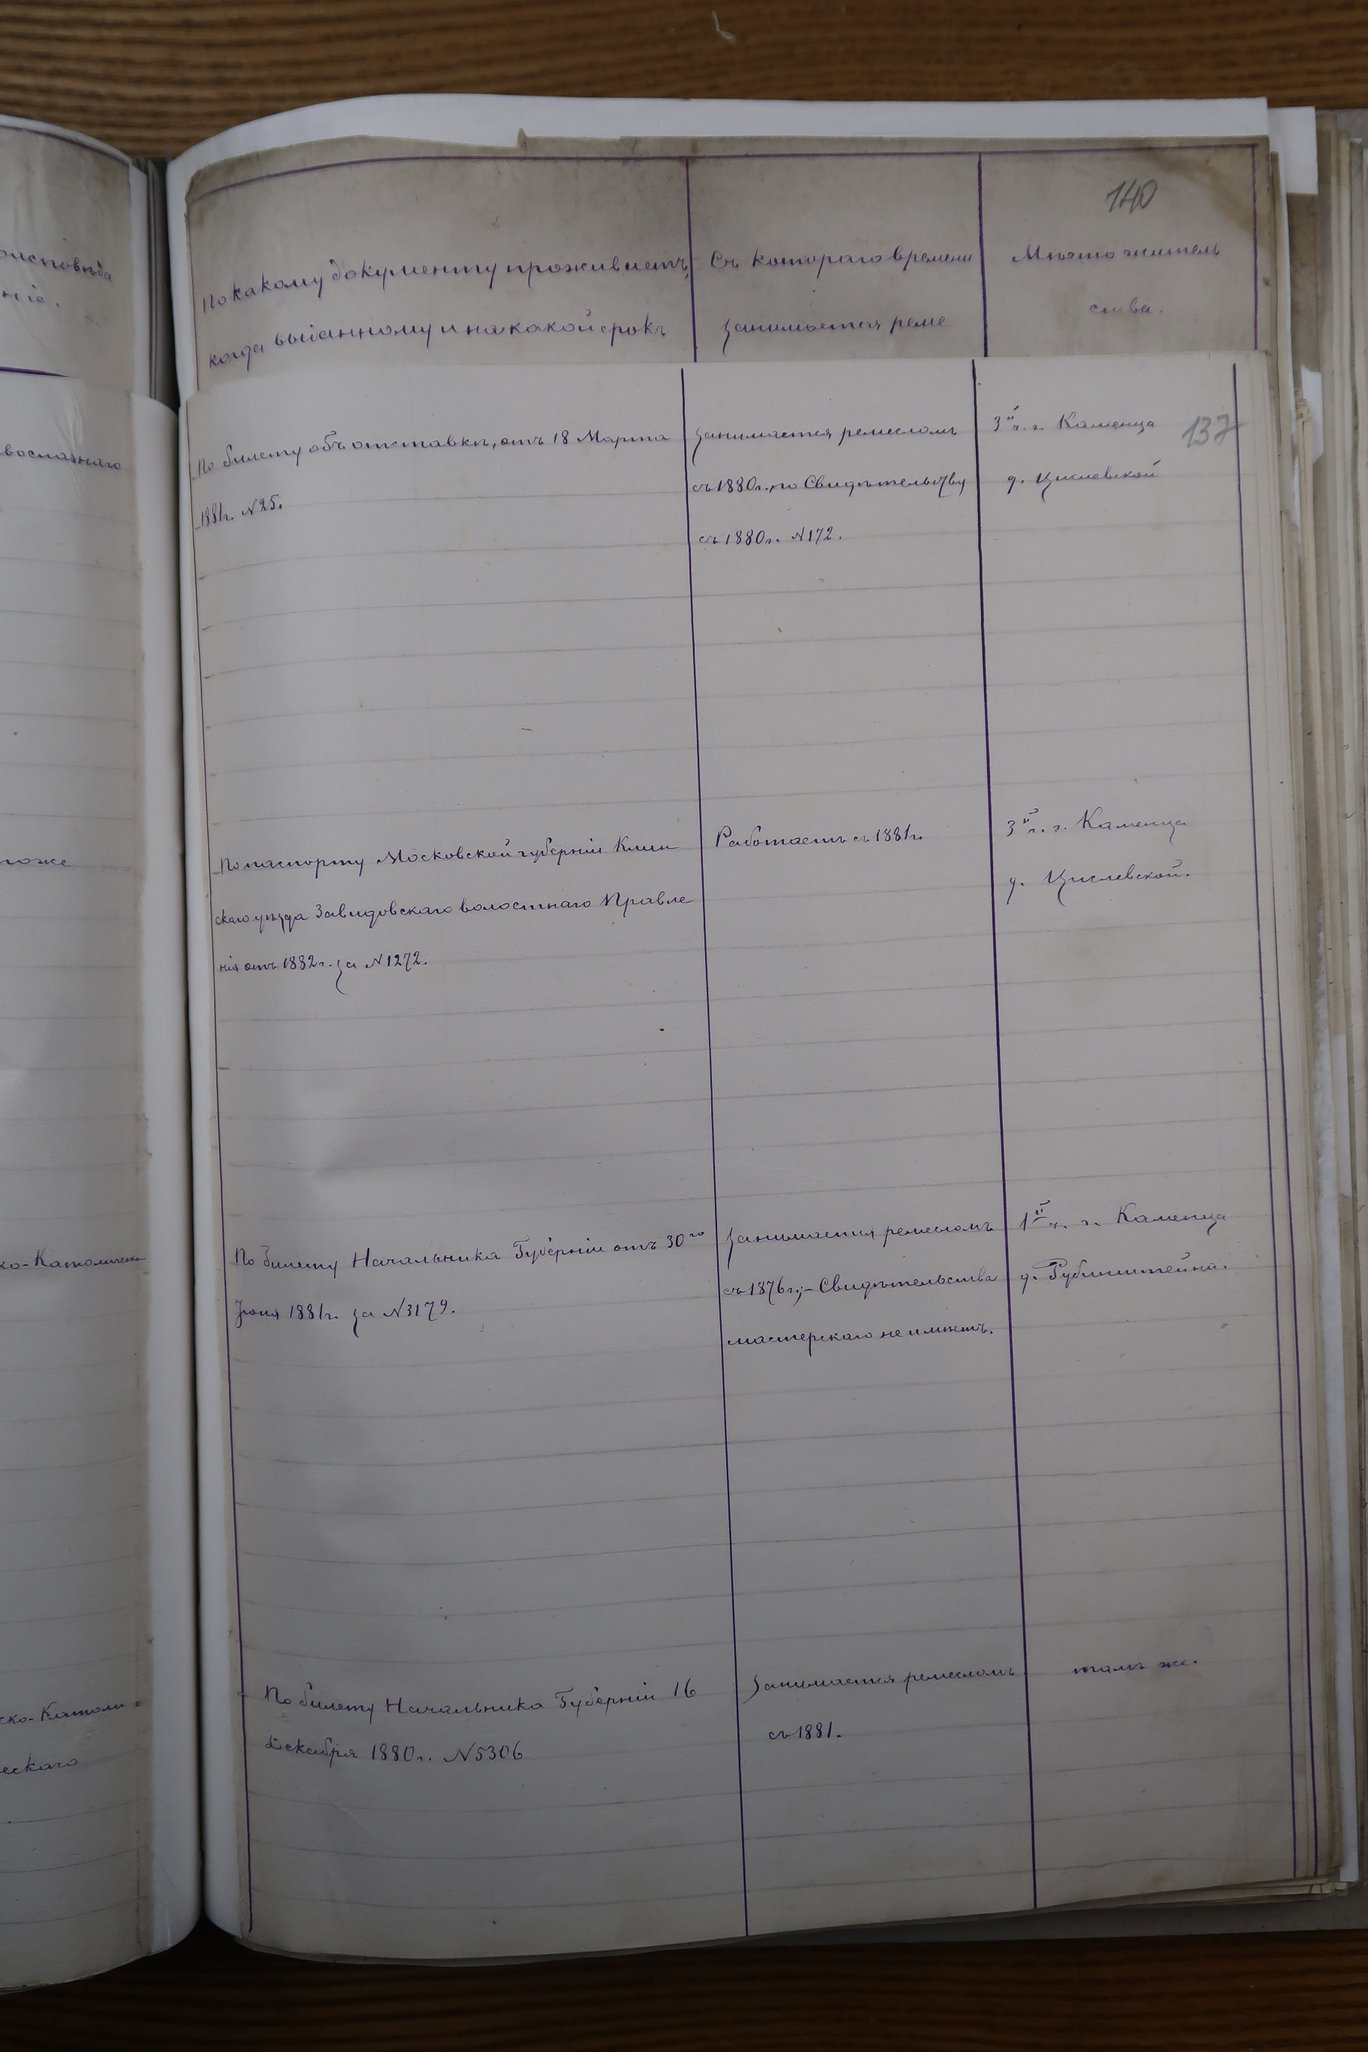 140
По какому документу проживаетъ,
когда выданному и на какой срокъ
Съ котораго времени
занимается реме
Мѣсто житель
ства.
137
По билету объ отставкѣ, отъ 18 Марта
1881г. №25.
занимается ремесломъ
съ 1880г. по Свидѣтельству
съ 1880г. №172.
3й ч. г. Каменца
д. Кислевской
По паспорту Московской губерніи Клин
скаго уѣзда Завидовскаго волостнаго Правле
нія отъ 1882г. за №1272.
Работаетъ съ 1881г.
3й ч. г. Каменца
д. Кислевской.
По билету Начальника Губерніи отъ 30го
Іюня 1881г. за №3179.
занимается ремесломъ
съ 1876г.,- Свидѣтельства
мастерскаго не имѣетъ.
1й ч. г. Каменца
д. Рубинштейна.
По билету Начальника Губерніи 16
декабря 1880г. №5306
занимается ремесломъ
съ 1881.
тамъ же.
ніе.
тоже
ко-Католическо
ско-Католи
ческаго